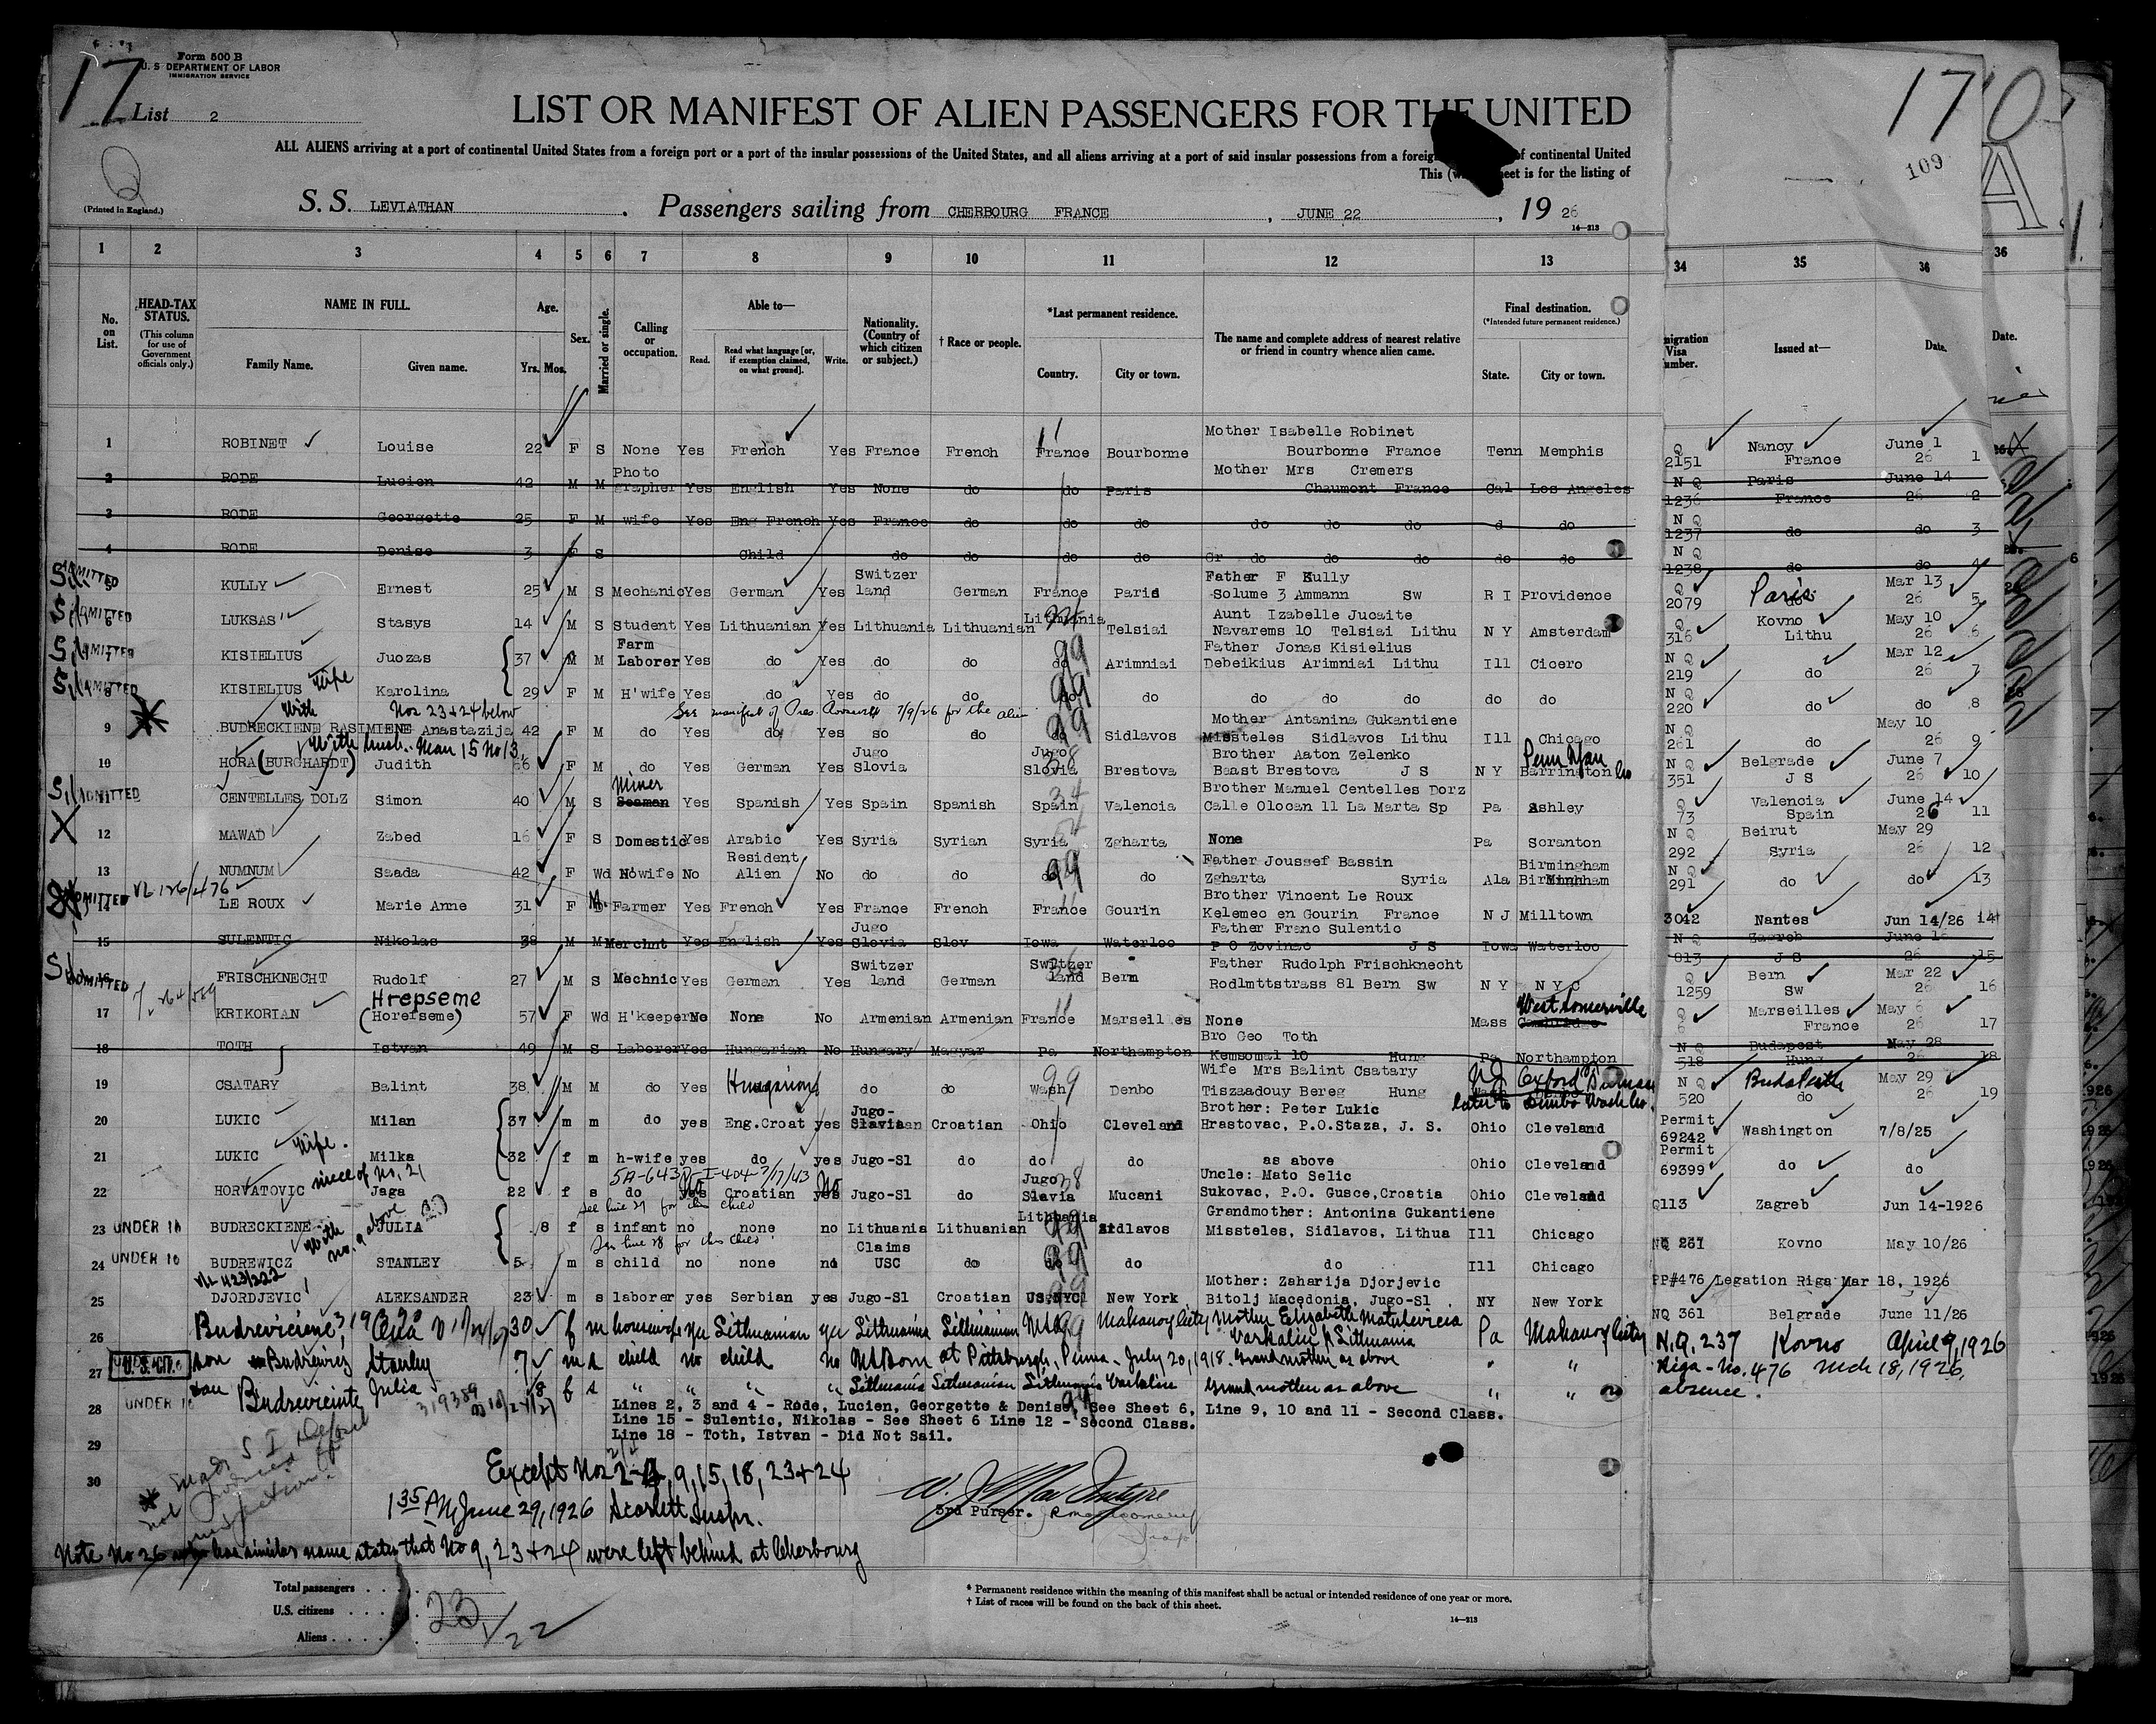 Form 500 B
U. S DEPARTMENT OF LABOR
IMMIGRATION SERVICE
17
List 2
LIST OR MANIFEST OF ALIEN PASSENGERS FOR THE UNITED
170
109
ALL ALIENS arriving at a port of continental United States from a foreign port or a port of the insular possessions of the United States, and all aliens arriving at a port of said insular possessions from a foreign of continental United
This sheet is for the listing of
(Printed in England.)
S. S. LEVIATHAN . Passengers sailing from CHERBOURG FRANCE , JUNE 22 , 19 26
14—213
1 2 3 4 5 6 7 8 9 10 11 12 13 34 35 36 36
No. on List. HEAD-TAX STATUS. (This column for use of Government officials only.) NAME IN FULL. Family Name. Given name. Age. Yrs. Mos. Sex. Married or single. Calling or occupation. Able to— Read. Read what language [or, if exemption claimed, on what ground]. Write. Nationality. (Country of which citizen or subject.) † Race or people. *Last permanent residence. Country. City or town. The name and complete address of nearest relative or friend in country whence alien came. Final destination. (*Intended future permanent residence.) State. City or town. migration Visa umber. Issued at— Date. Date.
1 ROBINET Louise 22 F S None Yes French Yes France French France Bourbonne Mother Isabelle Robinet Bourbonne France Tenn Memphis Q 2151 Nancy France June 1 26 1
2 RODE Lucien 42 M M Photo grapher Yes English Yes None do do Paris Mother Mrs Cremers Chaumont France Cal Los Angeles N Q 1236 Paris France June 14 26 2
3 RODE Georgette 25 F M wife Yes Eng French Yes France do do do do do do d do N Q 1237 do do 3
4 RODE Denise 3 F S Child do do do do Gr do do do do do N Q 1238 do do 4
ADMITTED 5 KULLY Ernest 25 M S Mechanic Yes German Yes Switzer land German France Paris Father F Kully Solume 3 Ammann Sw R I Providence Q 2079 Paris do Mar 13 26 5
ADMITTED 6 LUKSAS Stasys 14 M S Student Yes Lithuanian Yes Lithuania Lithuanian Lithuania Telsiai Aunt Izabelle Jucaite Navarems 10 Telsiai Lithu N Y Amsterdam Q 316 Kovno Lithu May 10 26 6
ADMITTED 7 KISIELIUS Juozas 37 M M Farm Laborer Yes do Yes do do do 99 Arimniai Father Jonas Kisielius Debeikius Arimniai Lithu Ill Cicero N Q 219 do Mar 12 26 7
ADMITTED 8 KISIELIUS Wife Karolina 29 F M H'wife Yes do Yes do do do 99 do do do do do do N Q 220 do do 8
With Nos 23+24 below See manifest of Pres. Roosevelt 7/9/26 for the alien
9 BUDRECKIENE RASIMIENE Anastazija 42 F M do Yes do Yes so do do 99 Sidlavos Mother Antanina Gukantiene Missteles Sidlavos Lithu Ill Chicago N Q 261 do May 10 26 9
With husb. Man 15 No 13
10 HORA (BURGHARDT) Judith 66 F M do Yes German Yes Jugo Slovia Jugo Slovia Brestova Brother Aaton Zelenko Banst Brestova J S N Y Penn Yan Barrington N Q 351 Belgrade J S June 7 26 10
ADMITTED 11 CENTELLES DOLZ Simon 40 M S Miner Seaman Yes Spanish Yes Spain Spanish Spain Valencia Brother Manuel Centelles Dorz Calle Olocan 11 La Marta Sp Pa Ashley Q 73 Valencia Spain June 14 26 11
X 12 MAWAD Zabed 16 F S Domestic Yes Arabic Yes Syria Syrian Syria Zgharta None Pa Scranton N Q 292 Beirut Syria May 29 26 12
13 NUMNUM Saada 42 F Wd H'wife No Resident Alien No do do do 99 do Father Joussef Bassin Zgharta Syria Ala Birmingham Birminhham N Q 291 do do 13
ADMITTED 14 LE ROUX Marie Anne 31 F M. Farmer Yes French Yes France French France Gourin Brother Vincent Le Roux Kelemec en Gourin France N J Milltown 3042 Nantes Jun 14/26 14
15 SULENTIC Nikolas 38 M M Merchnt Yes English Yes Jugo Slovia Slov Iowa Waterloo Father Frano Sulentic P O Zovinac J S Iowa Waterloo N Q 813 Zagreb J S June 14 26 15
ADMITTED 16 FRISCHKNECHT Rudolf 27 M S Mechnic Yes German Yes Switzer land German Switzer land Bern Father Rudolph Frischknecht Rodlmttstrass 81 Bern Sw N Y N Y C Q 1259 Bern Sw Mar 22 26 16
17 KRIKORIAN Hrepseme (Horefseme) 57 F Wd H'keeper No None No Armenian Armenian France Marseilles None Mass West Somerville Cambridge Q 6 Marseilles France May 6 26 17
18 TOTH Istvan 49 M S Laborer Yes Hungarian No Hungary Magyar Pa Northampton Bro Geo Toth Kemsomal 10 Hung Pa Northampton N Q 518 Budapest Hung May 28 26 18
19 CSATARY Balint 38 M M do Yes Hungarian do do Wash 99 Denbo Wife Mrs Balint Csatary Tiszaadouy Bereg Hung NJ Oxford later to Denbo Wash Co. N Q 520 Budapest do May 29 26 19
20 LUKIC Milan 37 m m do yes Eng.Croat yes Jugo-Slavia Croatian Ohio Cleveland Brother: Peter Lukic Hrastovac, P.O.Staza, J. S. Ohio Cleveland Permit 69242 Washington 7/8/25
21 LUKIC Wife. Milka 32 f m h-wife yes do yes Jugo-Sl do do do as above Ohio Cleveland Permit 69399 do do
niece of No. 21 5A-643
22 HORVATOVIC Jaga 22 f s do No Croatian No Jugo-Sl do Jugo Slavia Mucani Uncle: Mato Selic Sukovac, P.O. Gusce,Croatia Ohio Cleveland Q113 Zagreb Jun 14-1926
See line 27 for this child
23 UNDER 16 BUDRECKIENE JULIA 8 f s infant no none no Lithuania Lithuanian Lithuania 99 Sidlavos Grandmother: Antonina Gukantiene Missteles, Sidlavos, Lithua Ill Chicago NQ 261 Kovno May 10/26
With No. 9 above See line 28 for this child.
24 UNDER 16 BUDREWICZ STANLEY 5 m s child no none no Claims USC do do 99 do do Ill Chicago PP#476 Legation Riga Mar 18, 1926
25 DJORDJEVIC ALEKSANDER 23 m s laborer yes Serbian yes Jugo-Sl Croatian US.NYC 99 New York Mother: Zaharija Djorjevic Bitolj Macedonia, Jugo-Sl NY New York NQ 361 Belgrade June 11/26
26 Budreviciene, 30 f m housewife yes Lithuanian yes Lithuania Lithuanian USA 99 Mahanoy City Mother Elizabeth Lithuania Pa Mahanoy City N.Q. 237 Kovno April 9, 1926
27 U.S. CIT. son Budrewicz Stanley 7 m s child no child no US Born at Pittsburgh, Penna. July 20, 1918. Grandmother as above " " Riga - No. 476 Mch 18, 1926,
28 UNDER 16 dau Budreviciute Julia 8 f s " " " " Lithuania Lithuanian Lithuania Grandmother as above " " absence.
29 Lines 2, 3 and 4 - Rode, Lucien, Georgette & Denise, See Sheet 6, Line 9, 10 and 11 - Second Class.
Line 15 - Sulentic, Nikolas - See Sheet 6 Line 12 - Second Class.
Line 18 - Toth, Istvan - Did Not Sail.
30 Except Nos 2-4, 9, 15, 18, 23+24
1 35 AM June 29, 1926 Scarlett Inspr.
3rd Purser.
Note No 26 has similar name states that No 9, 23 + 24 were left behind at Cherbourg
Total passengers . . . .
U.S. citizens . . . .
Aliens . . . .
23/22
* Permanent residence within the meaning of this manifest shall be actual or intended residence of one year or more.
† List of races will be found on the back of this sheet.
14—213